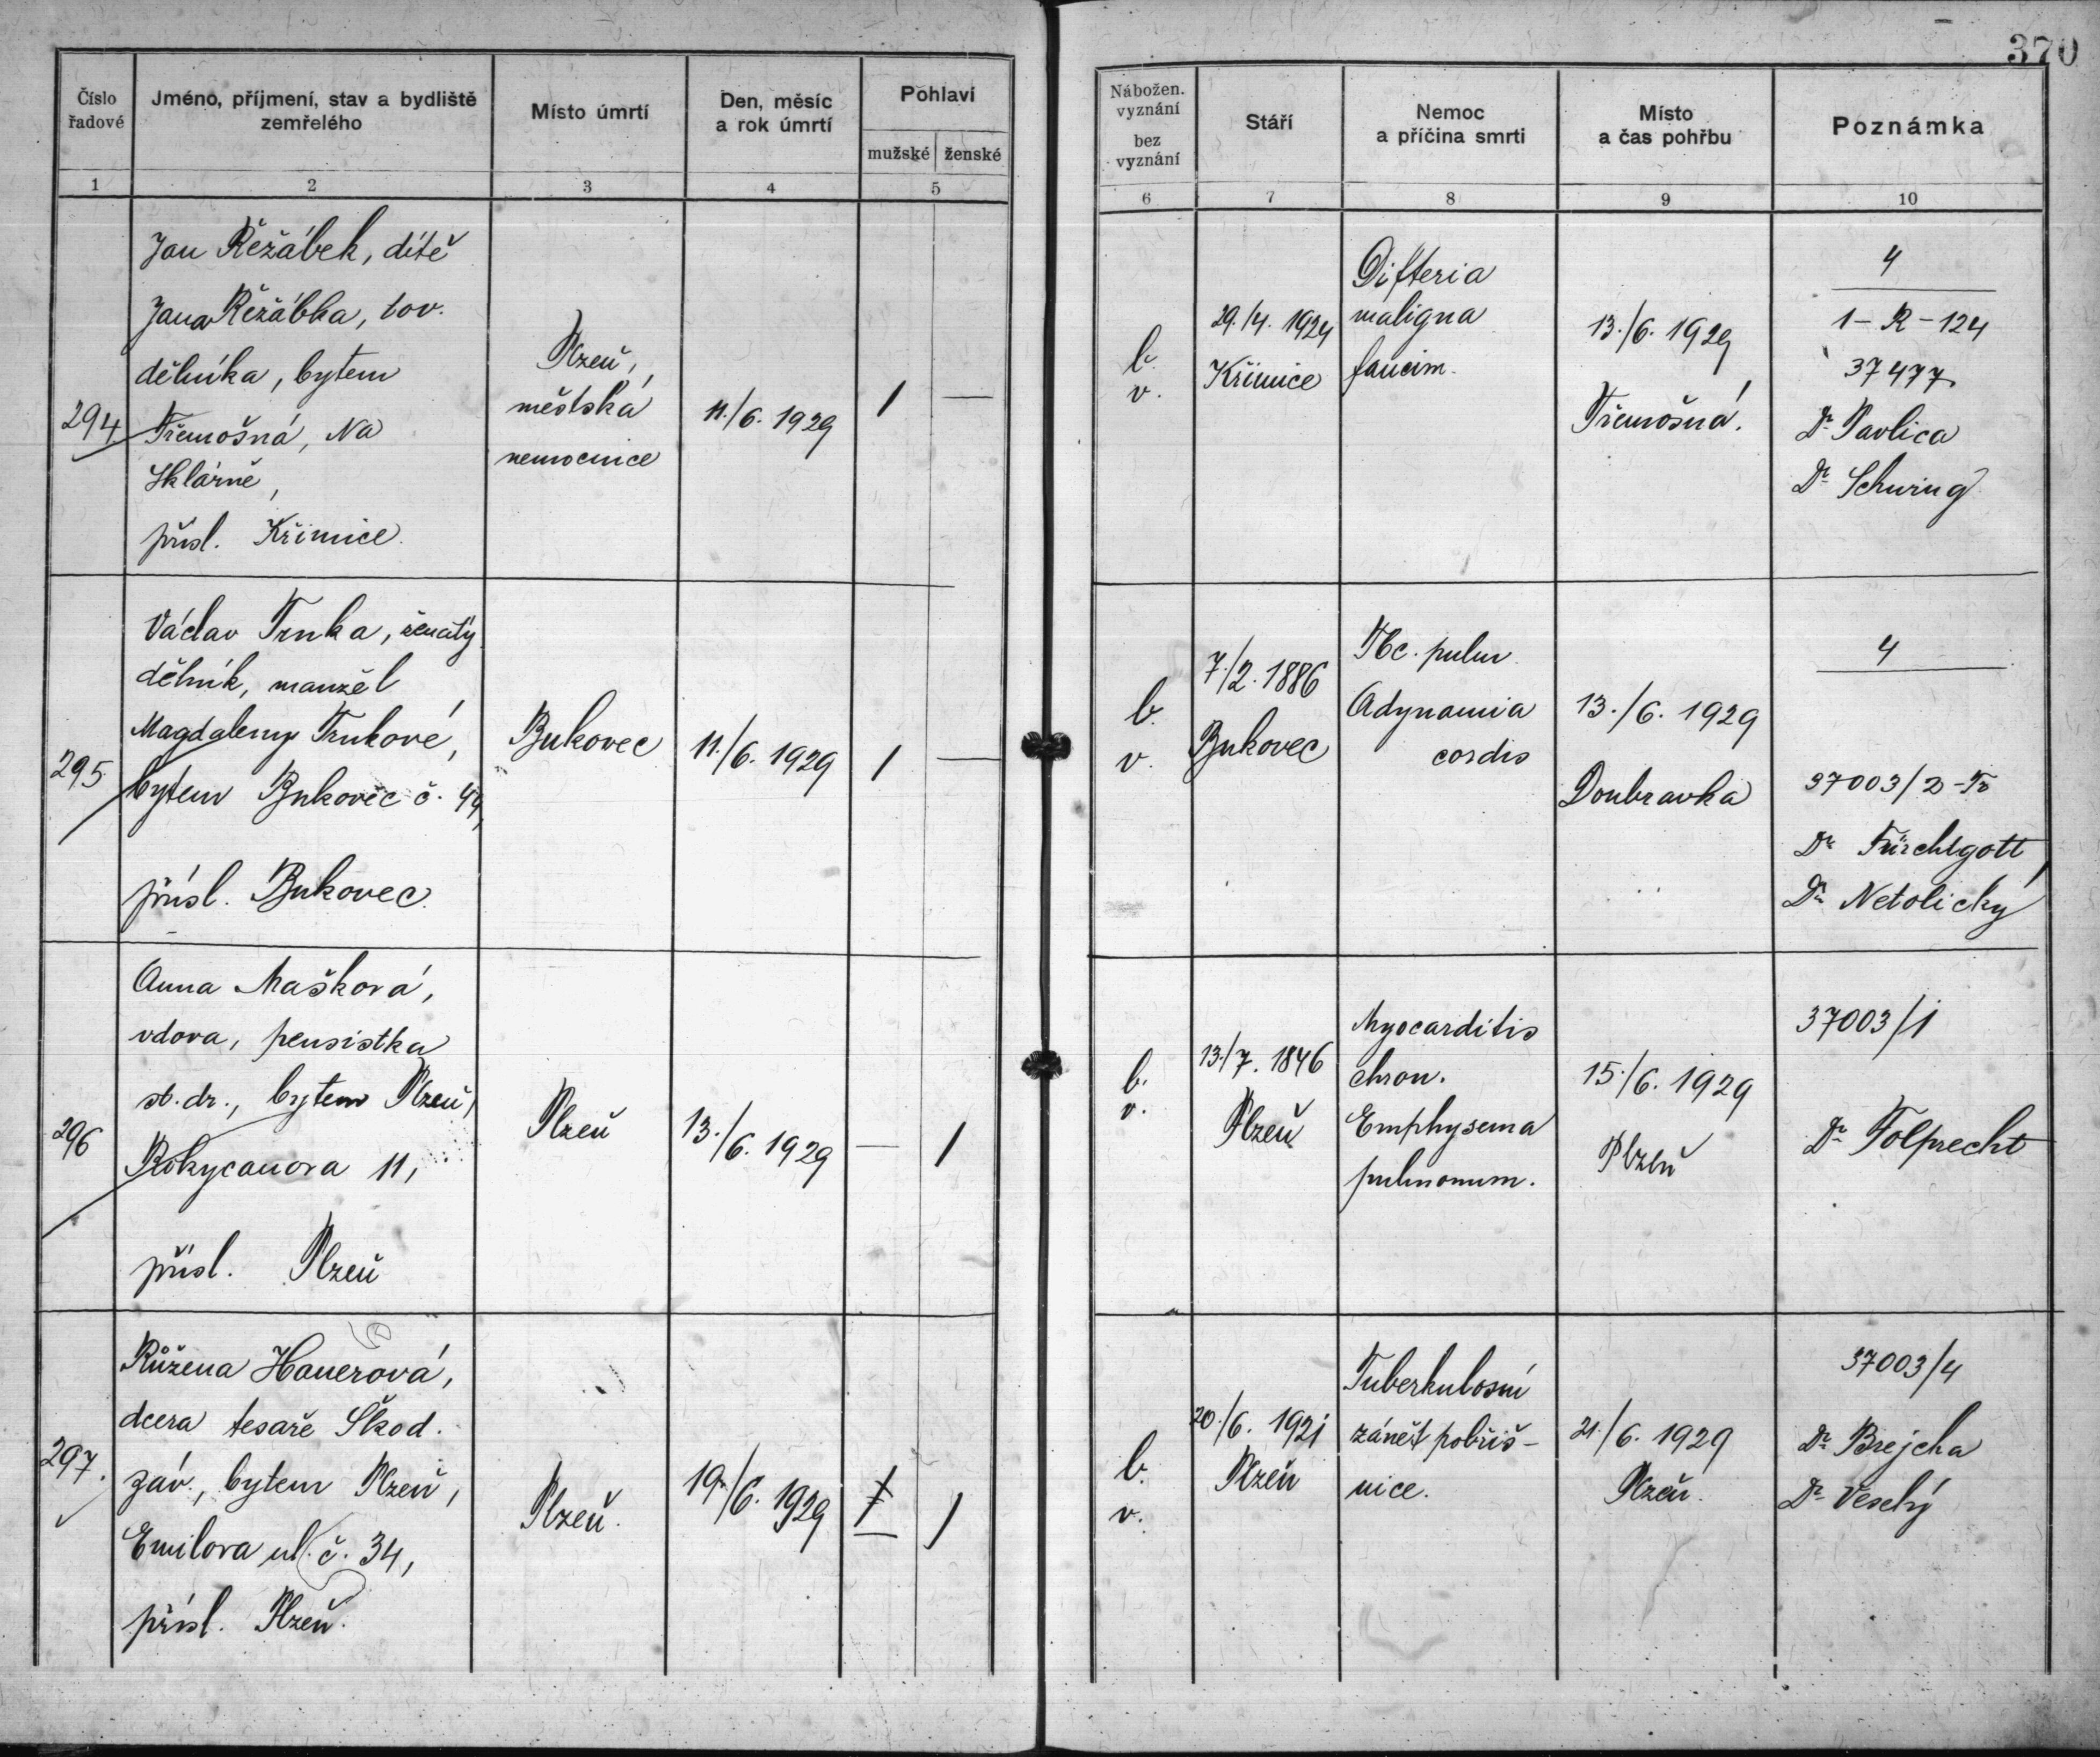 370
Číslo
řadové
Jméno, příjmení, stav a bydliště
zemřelého
Místo úmrtí
Den, měsíc
a rok úmrtí
Pohlaví
mužské ženské
1 2 3 4 5
Nábožen.
vyznání
bez
vyznání
Stáří
Nemoc
a příčina smrti
Místo
a čas pohřbu
Poznámka
6 7 8 9 10
294
Jan Řežábek, dítě
Jana Řežábka, tov.
dělníka, bytem
Třemošná, Na
Sklárně,
přísl. Křimice.
Plzeň,
městská
nemocnice
11./6. 1929
1 —
b.
v.
29./4. 1924
Křimice
Difteria
maligna
faucim.
13./6. 1929
Třemošná.
4
1-R-124
37477
Dr Pavlica
Dr Schwing
295
Václav Trnka, ženatý
dělník, manžel
Magdaleny Trnkové,
bytem Bukovec č. 44,
přísl. Bukovec
Bukovec
11./6. 1929
1 —
b.
v.
7./2. 1886
Bukovec
Tbc. pulm.
Adynamia
cordis
13./6. 1929
Doubravka
4
37003/2-Tr
Dr Fürchtgott
Dr Netolický
296
Anna Mašková,
vdova, pensistka
st. dr., bytem Plzeň,
Rokycanova 11,
přísl. Plzeň
Plzeň
13./6. 1929
— 1
b.
v.
13./7. 1846
Plzeň
Myocarditis
chron.
Emphysema
pulmonum.
15./6. 1929
Plzeň
37003/1
Dr Folprecht
297.
Růžena Hauerová,
dcera tesaře Škod.
záv., bytem Plzeň,
Emilova ul. č. 34,
přísl. Plzeň.
Plzeň.
19./6. 1929
1
b.
v.
20./6. 1921
Plzeň
Tuberkulosní
zánět pobřiš-
nice.
21./6. 1929
Plzeň.
37003/4
Dr Brejcha
Dr Veselý